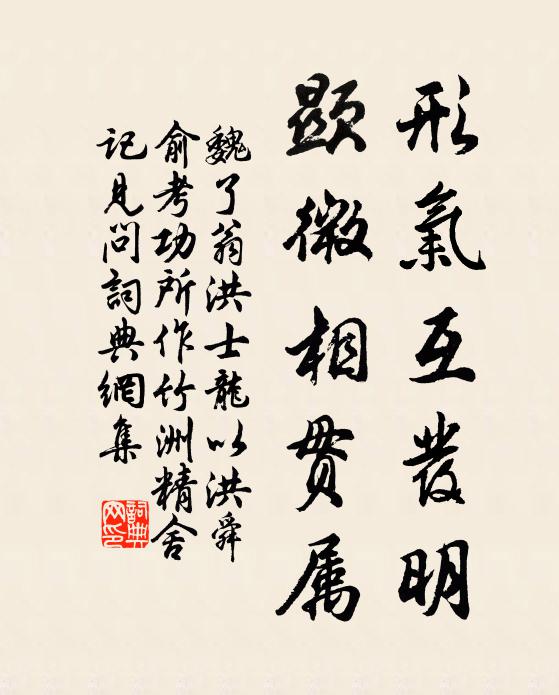 形氣互發明
顯微相貫属
魏了翁洪士龍以洪舜
俞考功所作竹洲精舍
記見问詞典網集
詞典
网印